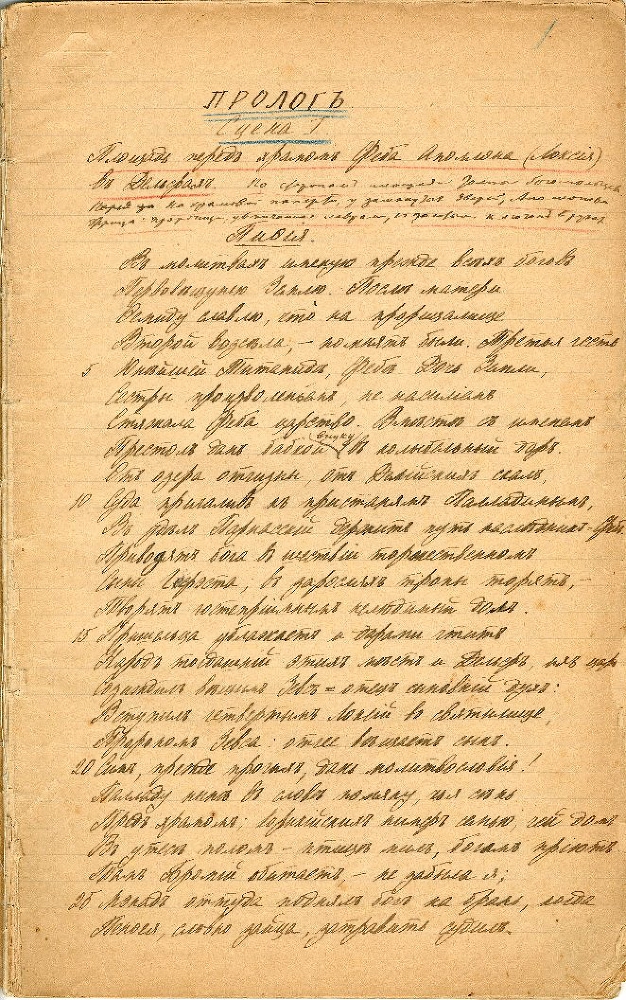 ПРОЛОГЪ
Сцена 1
Площадь передъ храмомъ Феба Аполлона (Локсія)
въ Дельфахъ.
Пиѳія.
Въ молитвахъ именую прежде всѣхъ боговъ
Первовѣщунью Землю. Послѣ матери
Ѳемиду славлю, что на прорицалище
Второй возсѣла, – помнятъ были. Третья честь
5 Юнѣйшей Титанидѣ, Фебѣ, Дочь Земли,
Сестры произволеньемъ, не насиліемъ
Стяжала Феба царство. Вмѣстѣ съ именемъ
Престолъ данъ бабкой внуку въ колыбельный даръ.
Отъ озера отчизны, отъ Делійскихъ скалъ,
10 Суда причаливъ къ пристанямъ Палладинымъ,
Въ Парнасскій держитъ путь
Приводятъ бога въ шествіи торжественномъ
Сыны Гефеста; въ заросляхъ тропы торятъ, –
Творятъ гостепріимнымъ нелюдимый домъ.
15 Пришельца ублажаетъ и дарами чтитъ
Народъ тогдашній этихъ мѣстъ и Дельфъ, ихъ царь
вѣщимъ Зевсъ-отецъ сыновній духъ:
Вступилъ четвертымъ Локсій въ святилище,
Пророкомъ Зевса: отчее вѣщаетъ сынъ.
20 Симъ, прежде прочихъ, дань молитвословія!
Палладу въ словѣ помяну, чья сѣнь
Предъ храмомъ; Корикійскихъ нимфъ семью, чей домъ
Въ утесѣ поломъ – птицъ милъ, богамъ пріютъ.
Тамъ Бромій обитаетъ – не забыла я;
25 Мэнадъ оттуда поднялъ богъ на брань, когда
Пенѳея, словно зайца, затравить судилъ.